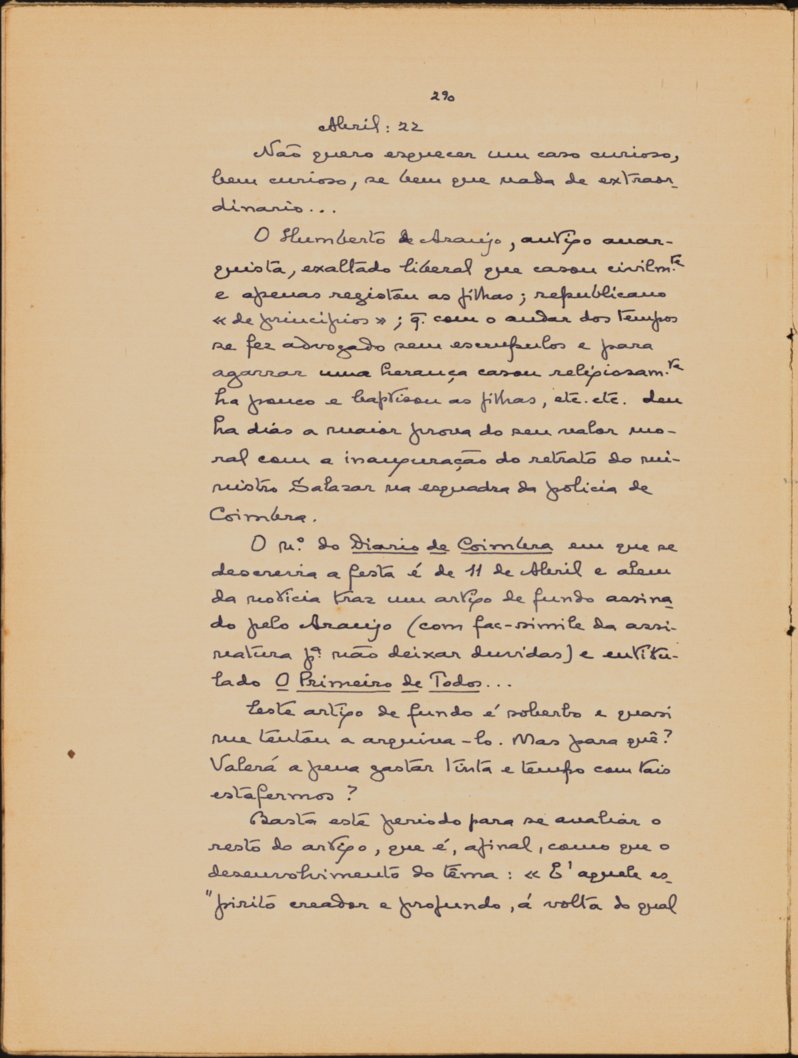 290
Abril: 22
Não quero esquecer um caso curioso,
bem curioso, se bem que nada de extraor-
dinario...
O Humberto de Araujo, antigo anar-
quista, exaltado liberal que casou civilm.te
e apenas registou as filhas; republicano
« de principios »; q. com o andar dos tempos
se fez advogado sem escrupulos e para
agarrar uma herança casou religiosam.te
ha pouco e baptisou as filhas, etc. etc. deu
ha dias a maior prova do seu valor mo-
ral com a inauguração do retrato do mi-
nistro Salazar na esquadra da policia de
Coimbra.
O n.º do Diario de Coimbra em que se
descrevia a festa é de 11 de Abril e alem
da noticia traz um artigo de fundo assina-
do pelo Araujo (com fac-simile da assi-
natura pª não deixar duvidas) e entitu-
lado O Primeiro de Todos...
Este artigo de fundo é soberbo e quasi
me tentou a arquiva-lo. Mas para quê?
Valerá a pena gastar tinta e tempo com tais
estafermos?
Basta este periodo para se avaliar o
resto do artigo, que é, afinal, como que o
desenvolvimento do têma: « E' aquele es-
"pirito creador e profundo, á volta do qual